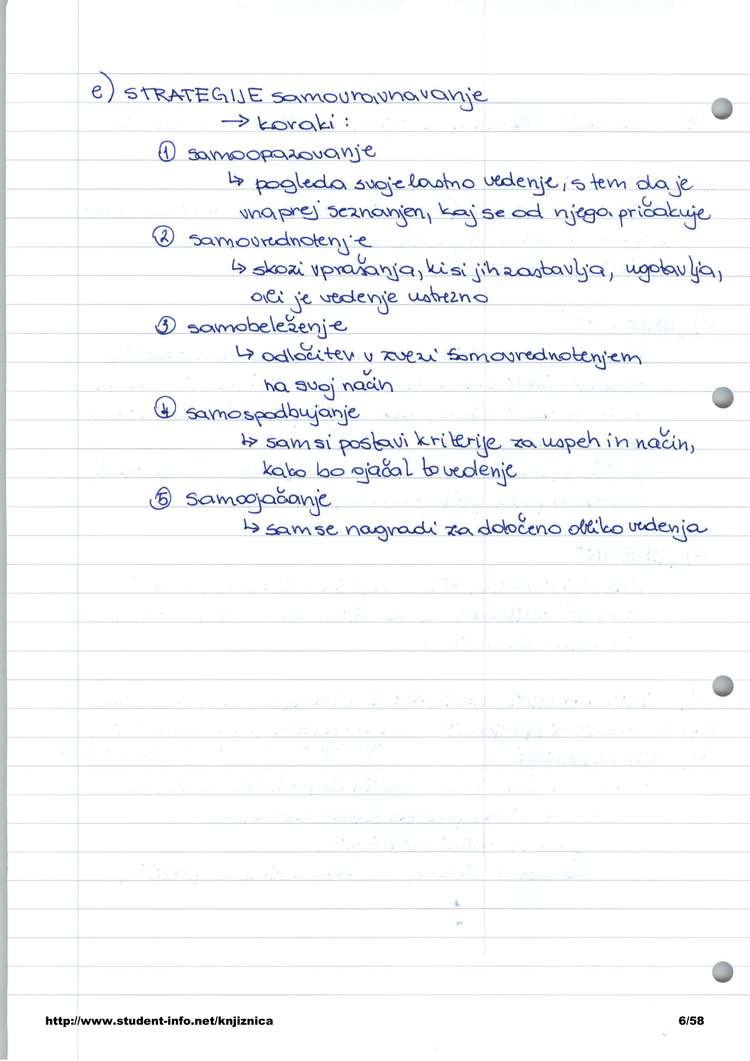 e) STRATEGIJE samouravnavanje
→ koraki:
① samoopazovanje
↳ pogleda svoje lastno vedenje, s tem da je
vnaprej seznanjen, kaj se od njega pričakuje
② samovrednotenje
↳ skozi vprašanja, ki si jih zastavlja, ugotavlja,
ali je vedenje ustrezno
③ samobeleženje
↳ odločitev v zvezi samovrednotenjem
na svoj način
④ samospodbujanje
↳ sam si postavi kriterije za uspeh in način,
kako bo ojačal to vedenje
⑤ samoojačanje
↳ sam se nagradi za določeno obliko vedenja
http://www.student-info.net/knjiznica 6/58